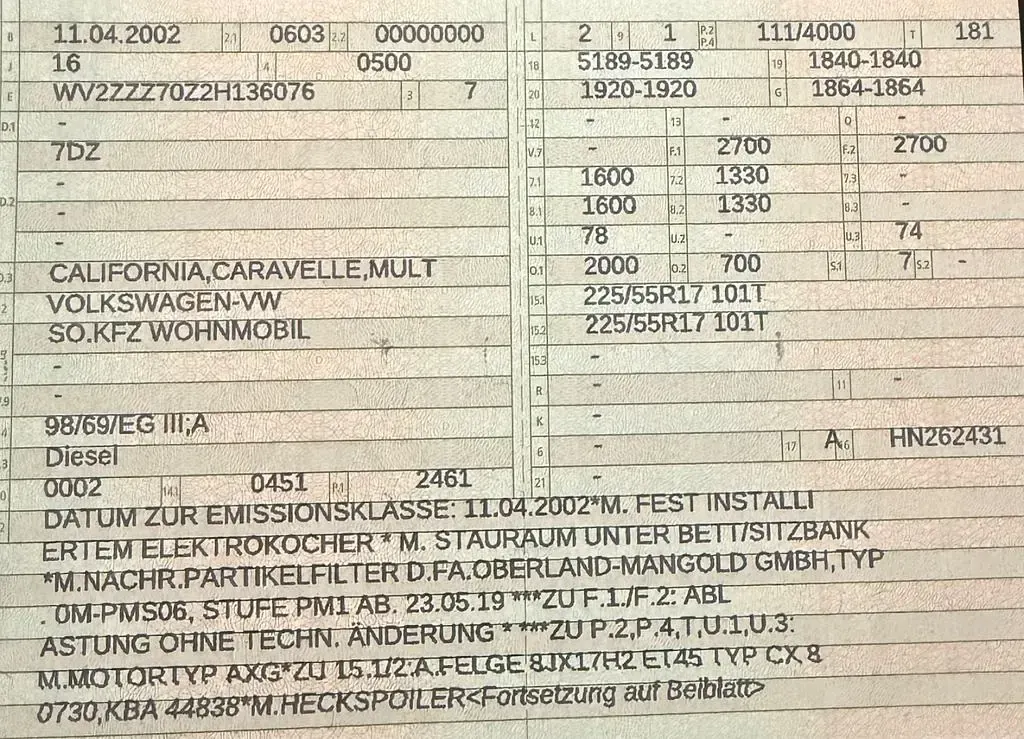 B 11.04.2002 2.1 0603 2.2 00000000
J 16 4 0500
E WV2ZZZ70Z2H136076 3 7
D.1 -
7DZ
D.2 -
-
-
D.3 CALIFORNIA,CARAVELLE,MULT
2 VOLKSWAGEN-VW
SO.KFZ WOHNMOBIL
-
-
98/69/EG III;A
Diesel
0002 14.1 0451 P.1 2461
L 2 9 1 P.2 P.4 111/4000 T 181
18 5189-5189 19 1840-1840
20 1920-1920 G 1864-1864
12 - 13 - Q -
V.7 - F.1 2700 F.2 2700
7.1 1600 7.2 1330 7.3 -
8.1 1600 8.2 1330 8.3 -
U.1 78 U.2 - U.3 74
O.1 2000 O.2 700 S.1 7 S.2 -
15.1 225/55R17 101T
15.2 225/55R17 101T
15.3 -
R - 11 -
K -
6 - 17 A 16 HN262431
21 -
DATUM ZUR EMISSIONSKLASSE: 11.04.2002*M. FEST INSTALLI
ERTEM ELEKTROKOCHER * M. STAURAUM UNTER BETT/SITZBANK
*M.NACHR.PARTIKELFILTER D.FA.OBERLAND-MANGOLD GMBH,TYP
. 0M-PMS06, STUFE PM1 AB. 23.05.19 ***ZU F.1./F.2: ABL
ASTUNG OHNE TECHN. ÄNDERUNG * ***ZU P.2,P.4,T,U.1,U.3:
M.MOTORTYP AXG*ZU 15.1/2:A.FELGE 8JX17H2 ET45 TYP CX 8
0730,KBA 44838*M.HECKSPOILER<Fortsetzung auf Beiblatt>